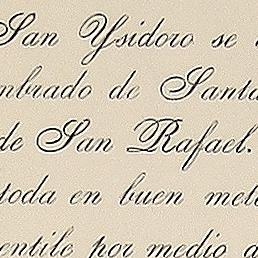 San Ysidoro se
mbrado de Santa
de San Rafael.
toda en buen met
entile por medio d